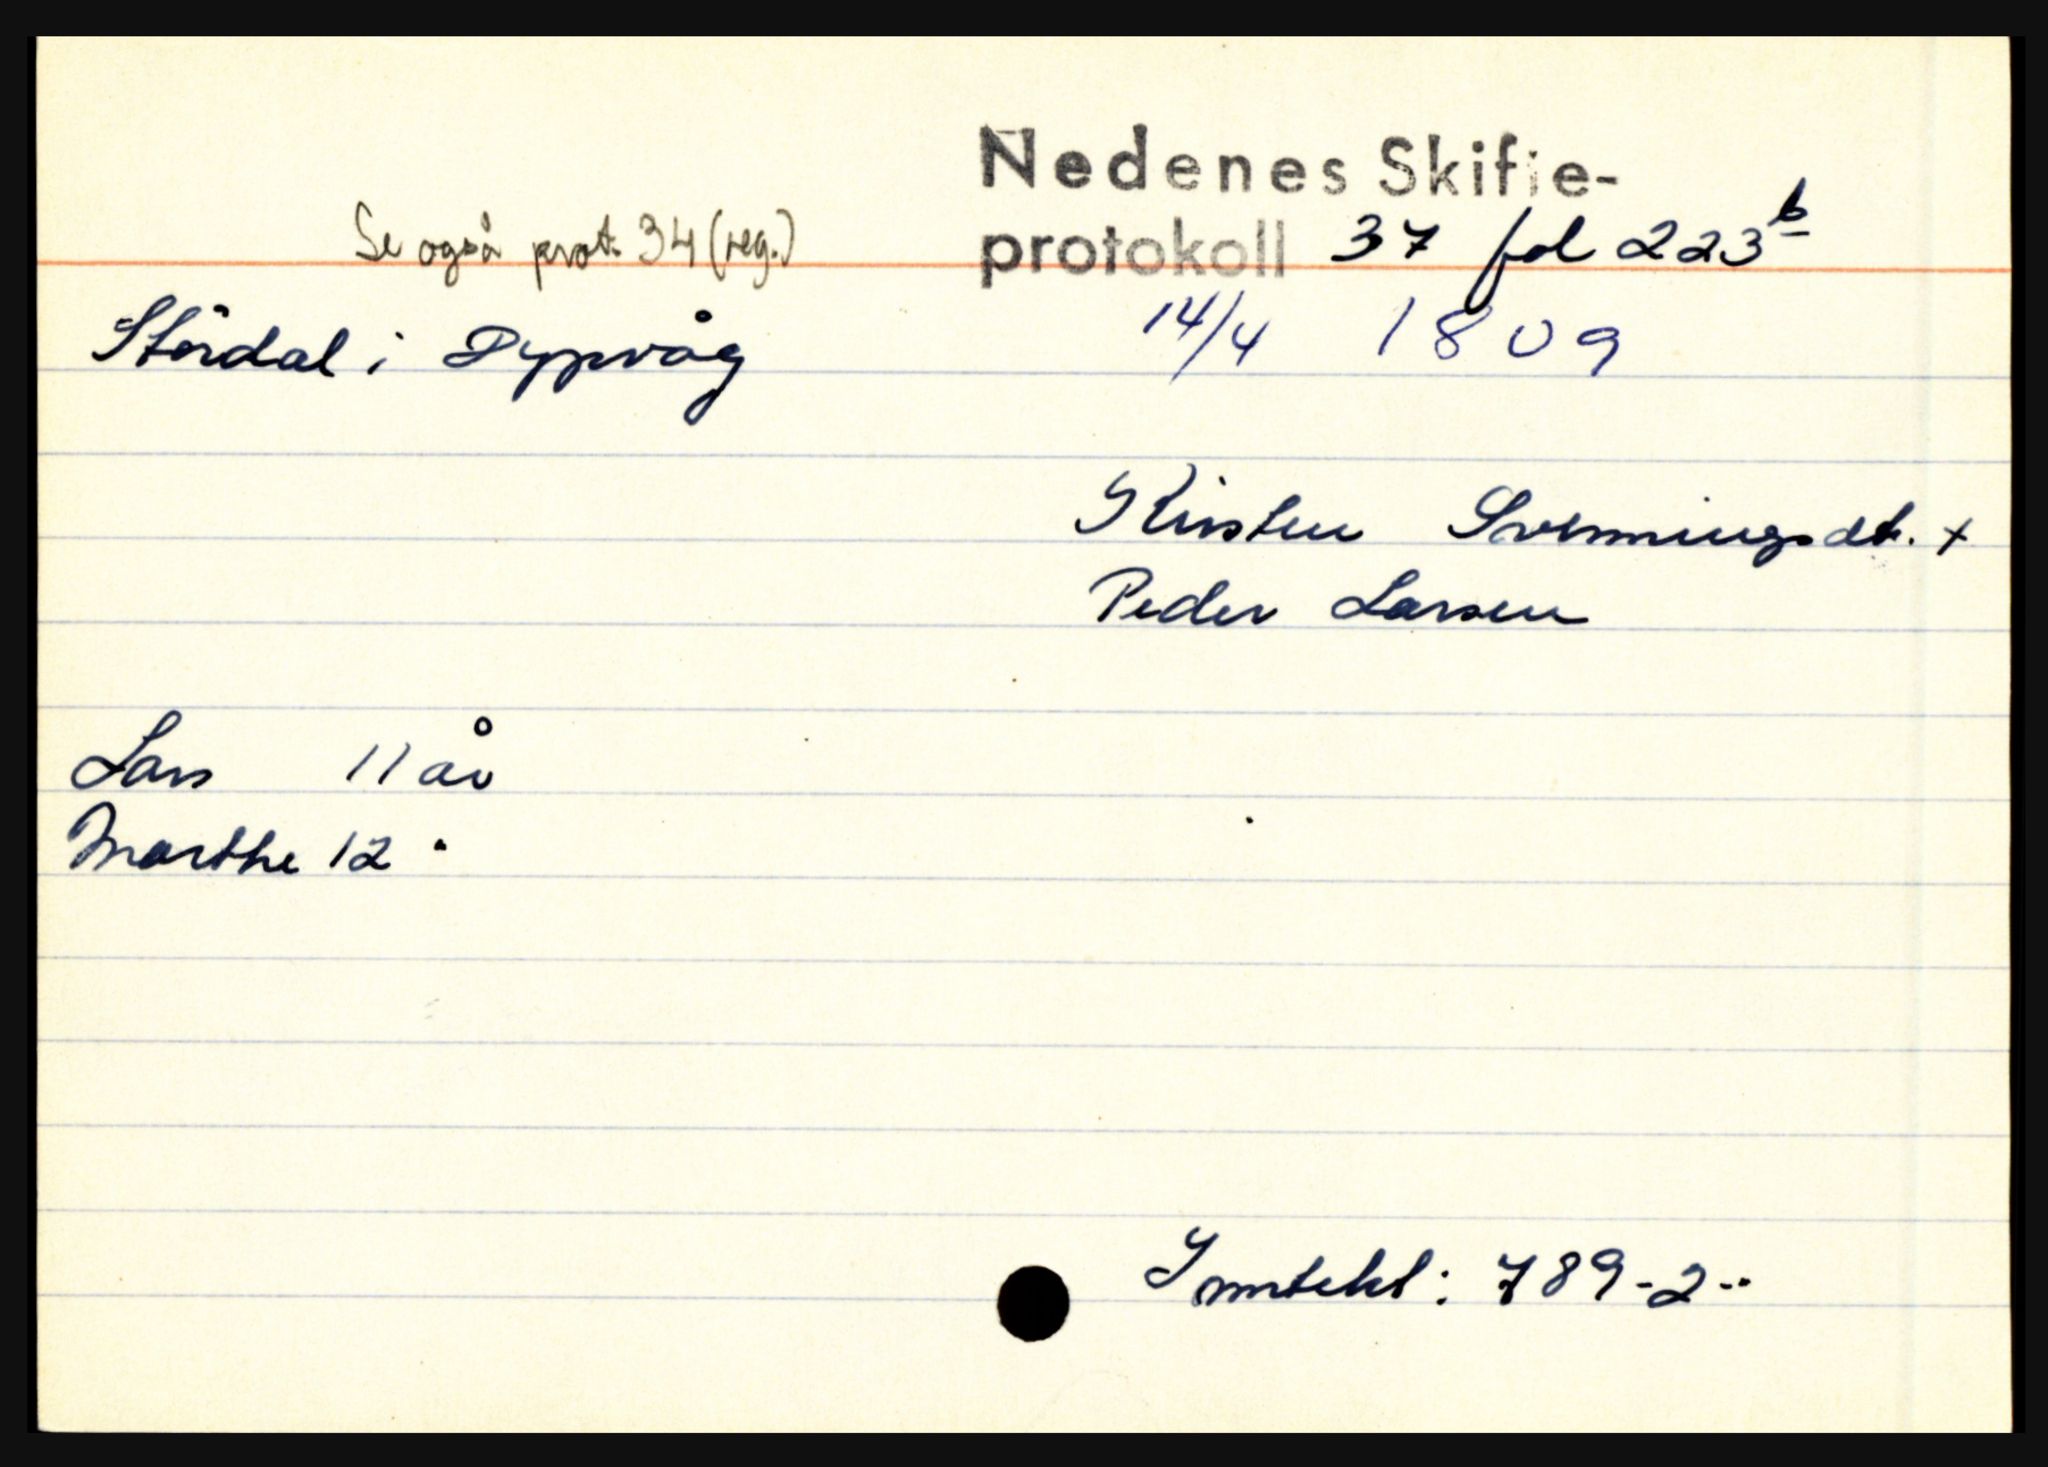 Nedenes Skifte-
Se også prot. 34 (reg.)
protokoll 37 fol 223 b
Stördal i Dypvåg
14/4 1809
Kirsten Svenningsdt. +
Peder Larsen
Lars 11 år
Marthe 12 "
Inntekt: 789-2-"